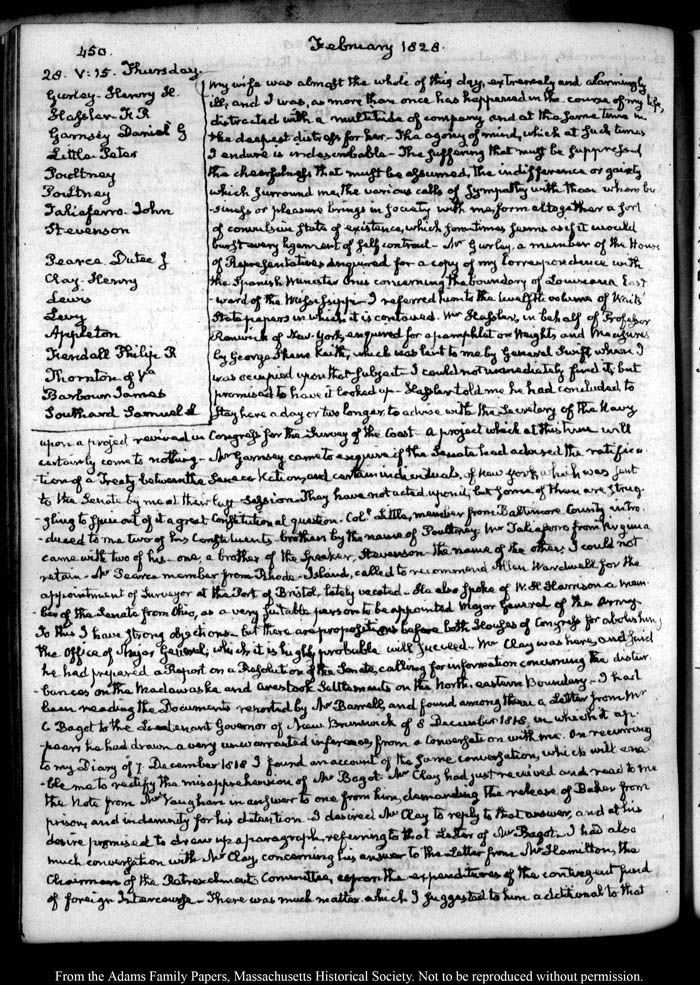 450.
February 1828.
28. V:15. Thursday.
Gurley. Henry H.
Hassler F. R
Garnsey Daniel G
Little Peter
Poultney
Poultney
Taliaferro. John
Stevenson
Pearce Dutee J
Clay. Henry
Lewis
Levy
Appleton
Kendall Philip R
Thornton of Va
Barbour James
Southard Samuel L
My wife was almost the whole of this day, extremely and alarmingly
ill, and I was, as more than once has happened in the course of my life,
distracted with a multitude of company and at the same time in
the deepest distress for her. The agony of mind, which at such times
I endure is indescribable. The suffering that must be suppressed
the cheerfulness that must be assumed, the indifference or gaiety
which surround me, the various calls of sympathy with those whom bu-
siness or pleasure brings in society with me, form altogether a sort
of convulsive state of existence, which sometimes seems as if it would
burst every ligament of self controul. Mr Gurley, a member of the House
of Representatives enquired for a copy of my correspondence with
the Spanish Minister Onis concerning the boundary of Louisiana East-
ward of the Mississippi. I referred him to the twelfth volume of Wait's
State papers in which it is contained. Mr Hassler, in behalf of Professor
Renwick of New-York, enquired for a pamphlet on Weights and Measures
by George Skene Keith, which was lent to me by General Swift when I
was occupied upon that subject. I could not immediately find it, but
promised to have it looked up. Hassler told me he had concluded to
stay here a day or two longer, to advise with the Secretary of the Navy
upon a project revived in Congress for the Survey of the Coast. A project which at this time will
certainly come to nothing. Mr Garnsey came to enquire if the Senate had advised the ratifica-
tion of a Treaty between the Seneca Nation, and certain individuals, of New York, which was sent
to the Senate by me at their last Session. They have not acted upon it, but some of them are strug-
gling to spin out of it a great Constitutional question. Coll. Little, member from Baltimore County intro-
duced to me two of his Constituents, brothers by the name of Poultney. Mr Taliaferro from Virginia
came with two of his. one, a brother of the Speaker, Stevenson. the name of the other I could not
retain. Mr Pearce member from Rhode-Island, called to recommend Allen Wardwell for the
appointment of Surveyor at the Port of Bristol, lately vacated. He also spoke of W. H. Harrison a mem-
ber of the Senate from Ohio, as a very suitable person to be appointed Major General of the Army.
To this I have strong objections. but there are propositions before both Houses of Congress for abolishing
the Office of Major General, which it is highly probable will succeed. Mr Clay was here, and said
he had prepared a Report on a Resolution of the Senate, calling for information concerning the distur-
bances on the Madawaska and Arestook Settlements on the North-eastern Boundary. I had
been reading the Documents reported by Mr Barrell, and found among them a Letter from Mr
C Bagot to the Lieutenant Governor of New Brunswick of 8 December 1818, in which it ap-
pears he had drawn a very unwarranted inference, from a Conversation with me. On recurring
to my Diary of 7 December 1818 I found an account of the same conversation, which will ena-
ble me to rectify the misapprehension of Mr Bagot. Mr Clay had just received and read to me
the Note from Mr Vaughan in answer to one from him, demanding the release of Baker from
prison, and indemnity for his detention. I desired Mr Clay to reply to that answer, and at his
desire promised to draw up a paragraph, referring to that Letter of Mr Bagot. I had also
much conversation with Mr Clay, concerning his answer to the Letter from Mr Hamilton, the
Chairman of the Retrenchment Committee, upon the expenditures of the contingent fund
of foreign Intercourse. There was much matter which I suggested to him additional to that
From the Adams Family Papers, Massachusetts Historical Society. Not to be reproduced without permission.